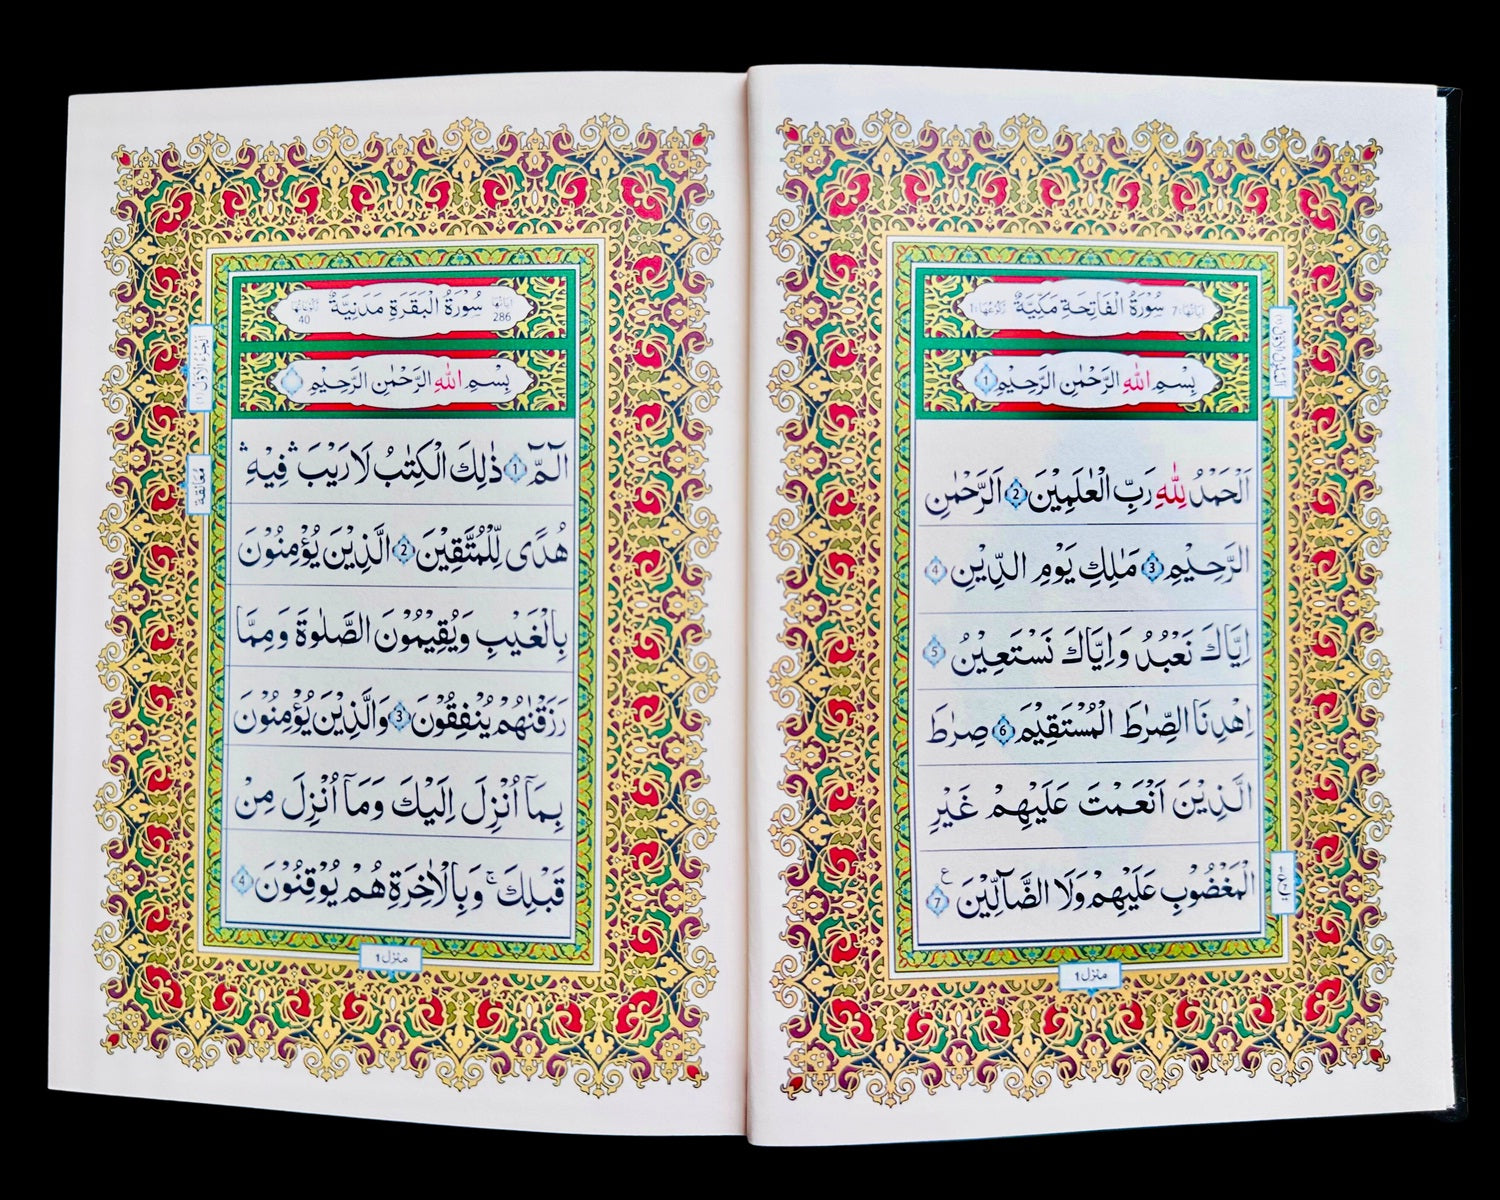 سُوْرَةُ الْفَاتِحَةِ مَكِّيَّةٌ
اٰيَاتُهَا:7
رُكُوْعُهَا:1
بِسْمِ اللّٰهِ الرَّحْمٰنِ الرَّحِيْمِ 1
اَلْحَمْدُ لِلّٰهِ رَبِّ الْعٰلَمِيْنَ 2 اَلرَّحْمٰنِ
الرَّحِيْمِ 3 مٰلِكِ يَوْمِ الدِّيْنِ 4
اِيَّاكَ نَعْبُدُ وَاِيَّاكَ نَسْتَعِيْنُ 5
اِهْدِنَا الصِّرٰطَ الْمُسْتَقِيْمَ 6 صِرٰطَ
الَّذِيْنَ اَنْعَمْتَ عَلَيْهِمْ غَيْرِ
الْمَغْضُوْبِ عَلَيْهِمْ وَلَا الضَّآلِّيْنَ ع 7
منزل 1
سُوْرَةُ الْبَقَرَةِ مَدَنِيَّةٌ
اٰيَاتُهَا 286
رُكُوْعَاتُهَا 40
بِسْمِ اللّٰهِ الرَّحْمٰنِ الرَّحِيْمِ
اَلْجُزْءُ الْاَوَّلُ (1)
مُعَانَقَة
الٓمّٓ 1 ذٰلِكَ الْكِتٰبُ لَا رَيْبَ ۛ فِيْهِ ۛ
هُدًى لِّلْمُتَّقِيْنَ 2 الَّذِيْنَ يُؤْمِنُوْنَ
بِالْغَيْبِ وَيُقِيْمُوْنَ الصَّلٰوةَ وَمِمَّا
رَزَقْنٰهُمْ يُنْفِقُوْنَ 3 وَالَّذِيْنَ يُؤْمِنُوْنَ
بِمَآ اُنْزِلَ اِلَيْكَ وَمَآ اُنْزِلَ مِنْ
قَبْلِكَ ۚ وَبِالْاٰخِرَةِ هُمْ يُوْقِنُوْنَ 4
منزل 1